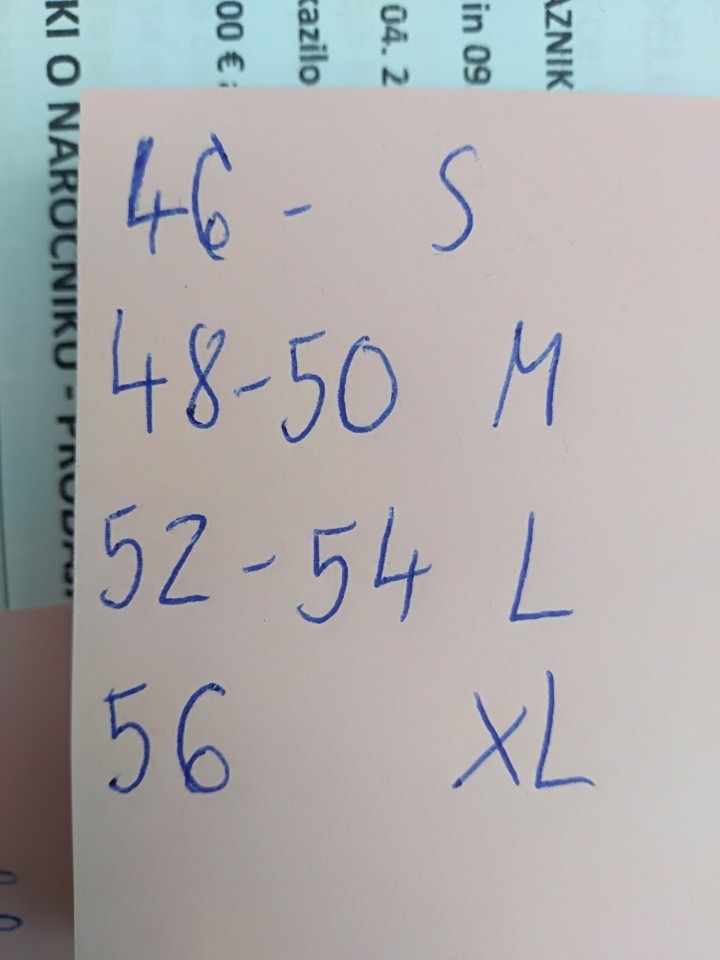 46 - S
48-50 M
52-54 L
56 XL
KI O NAROČNIKU - PRODAJ
00 €
kazilo
04. 2
in 09
AZNIK